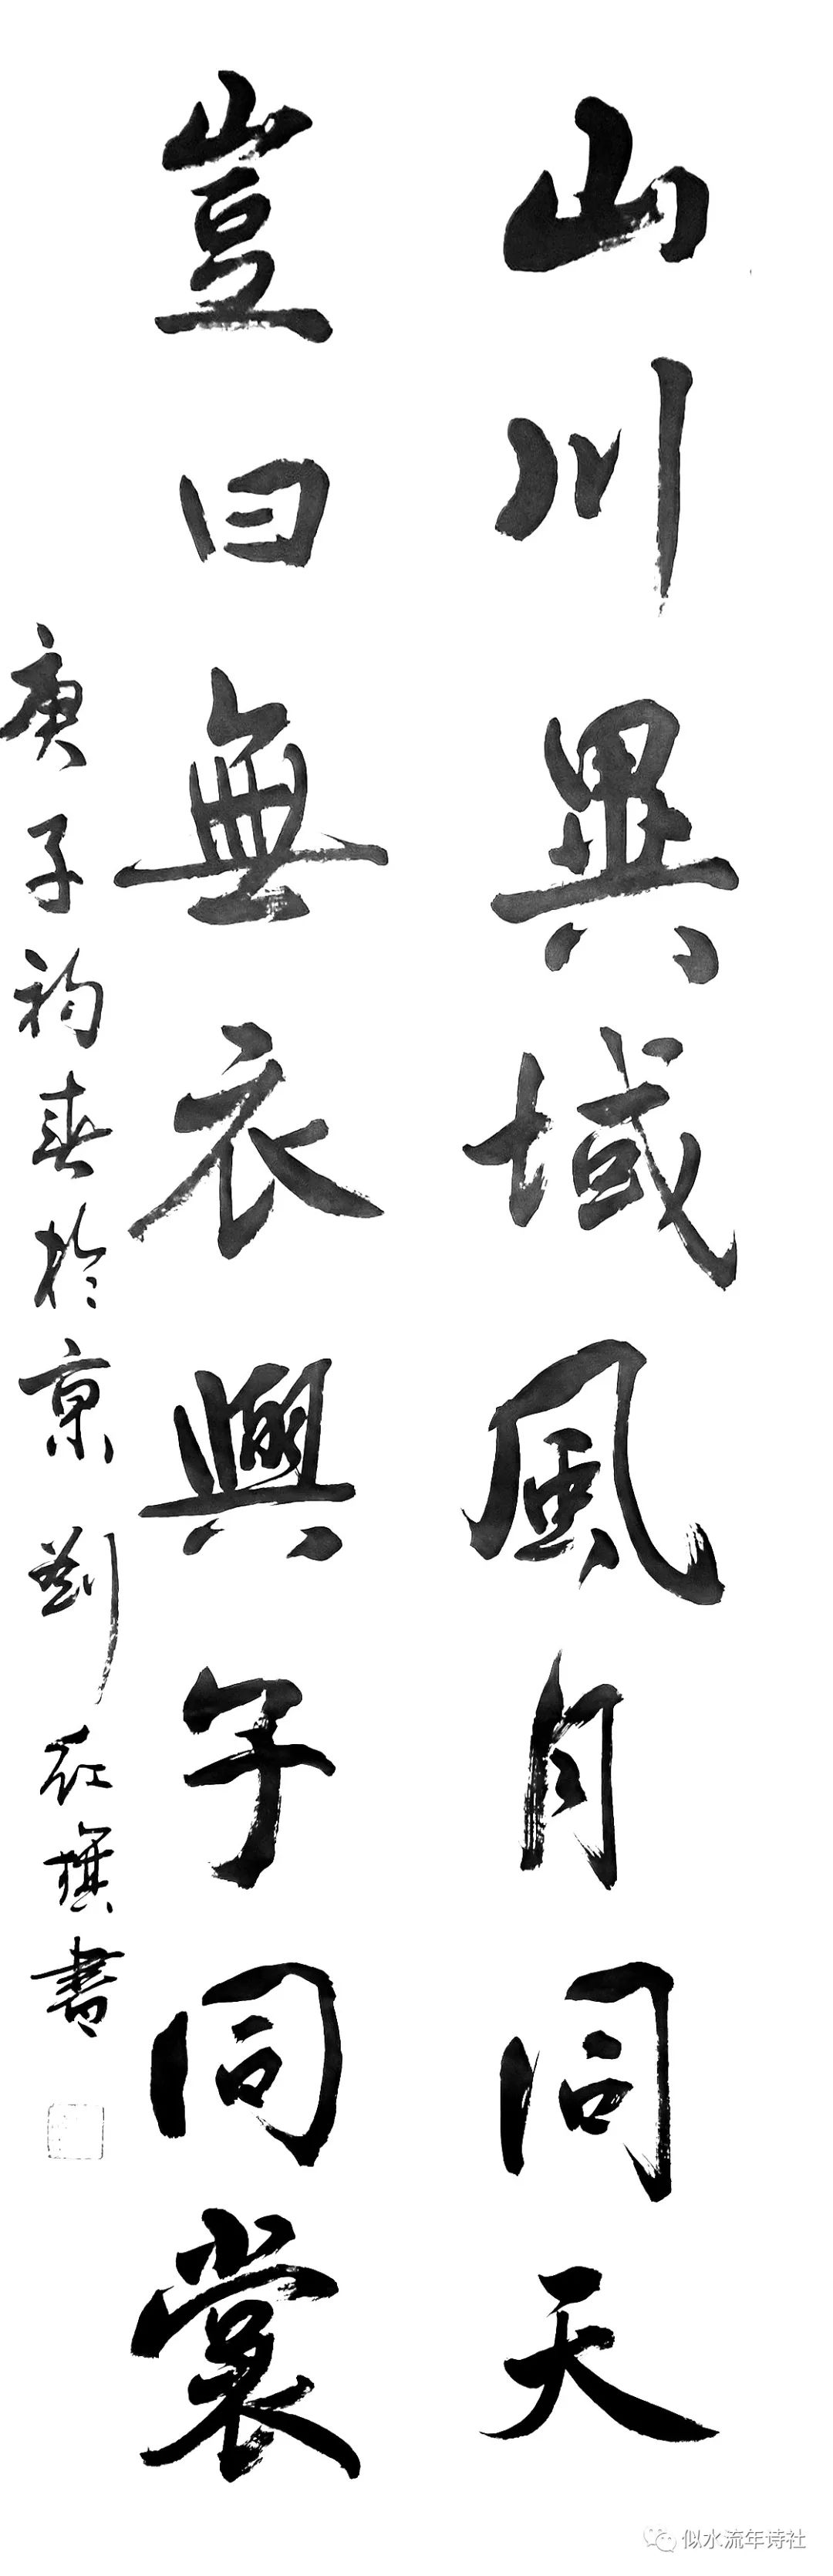 山川異域風月同天
豈曰無衣與子同裳
庚子初春於京 劉紅旗書
似水流年诗社